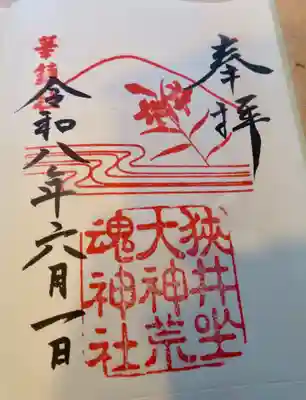 奉拝
狭井坐
大神荒
魂神社
華鎮社
令和八年六月一日